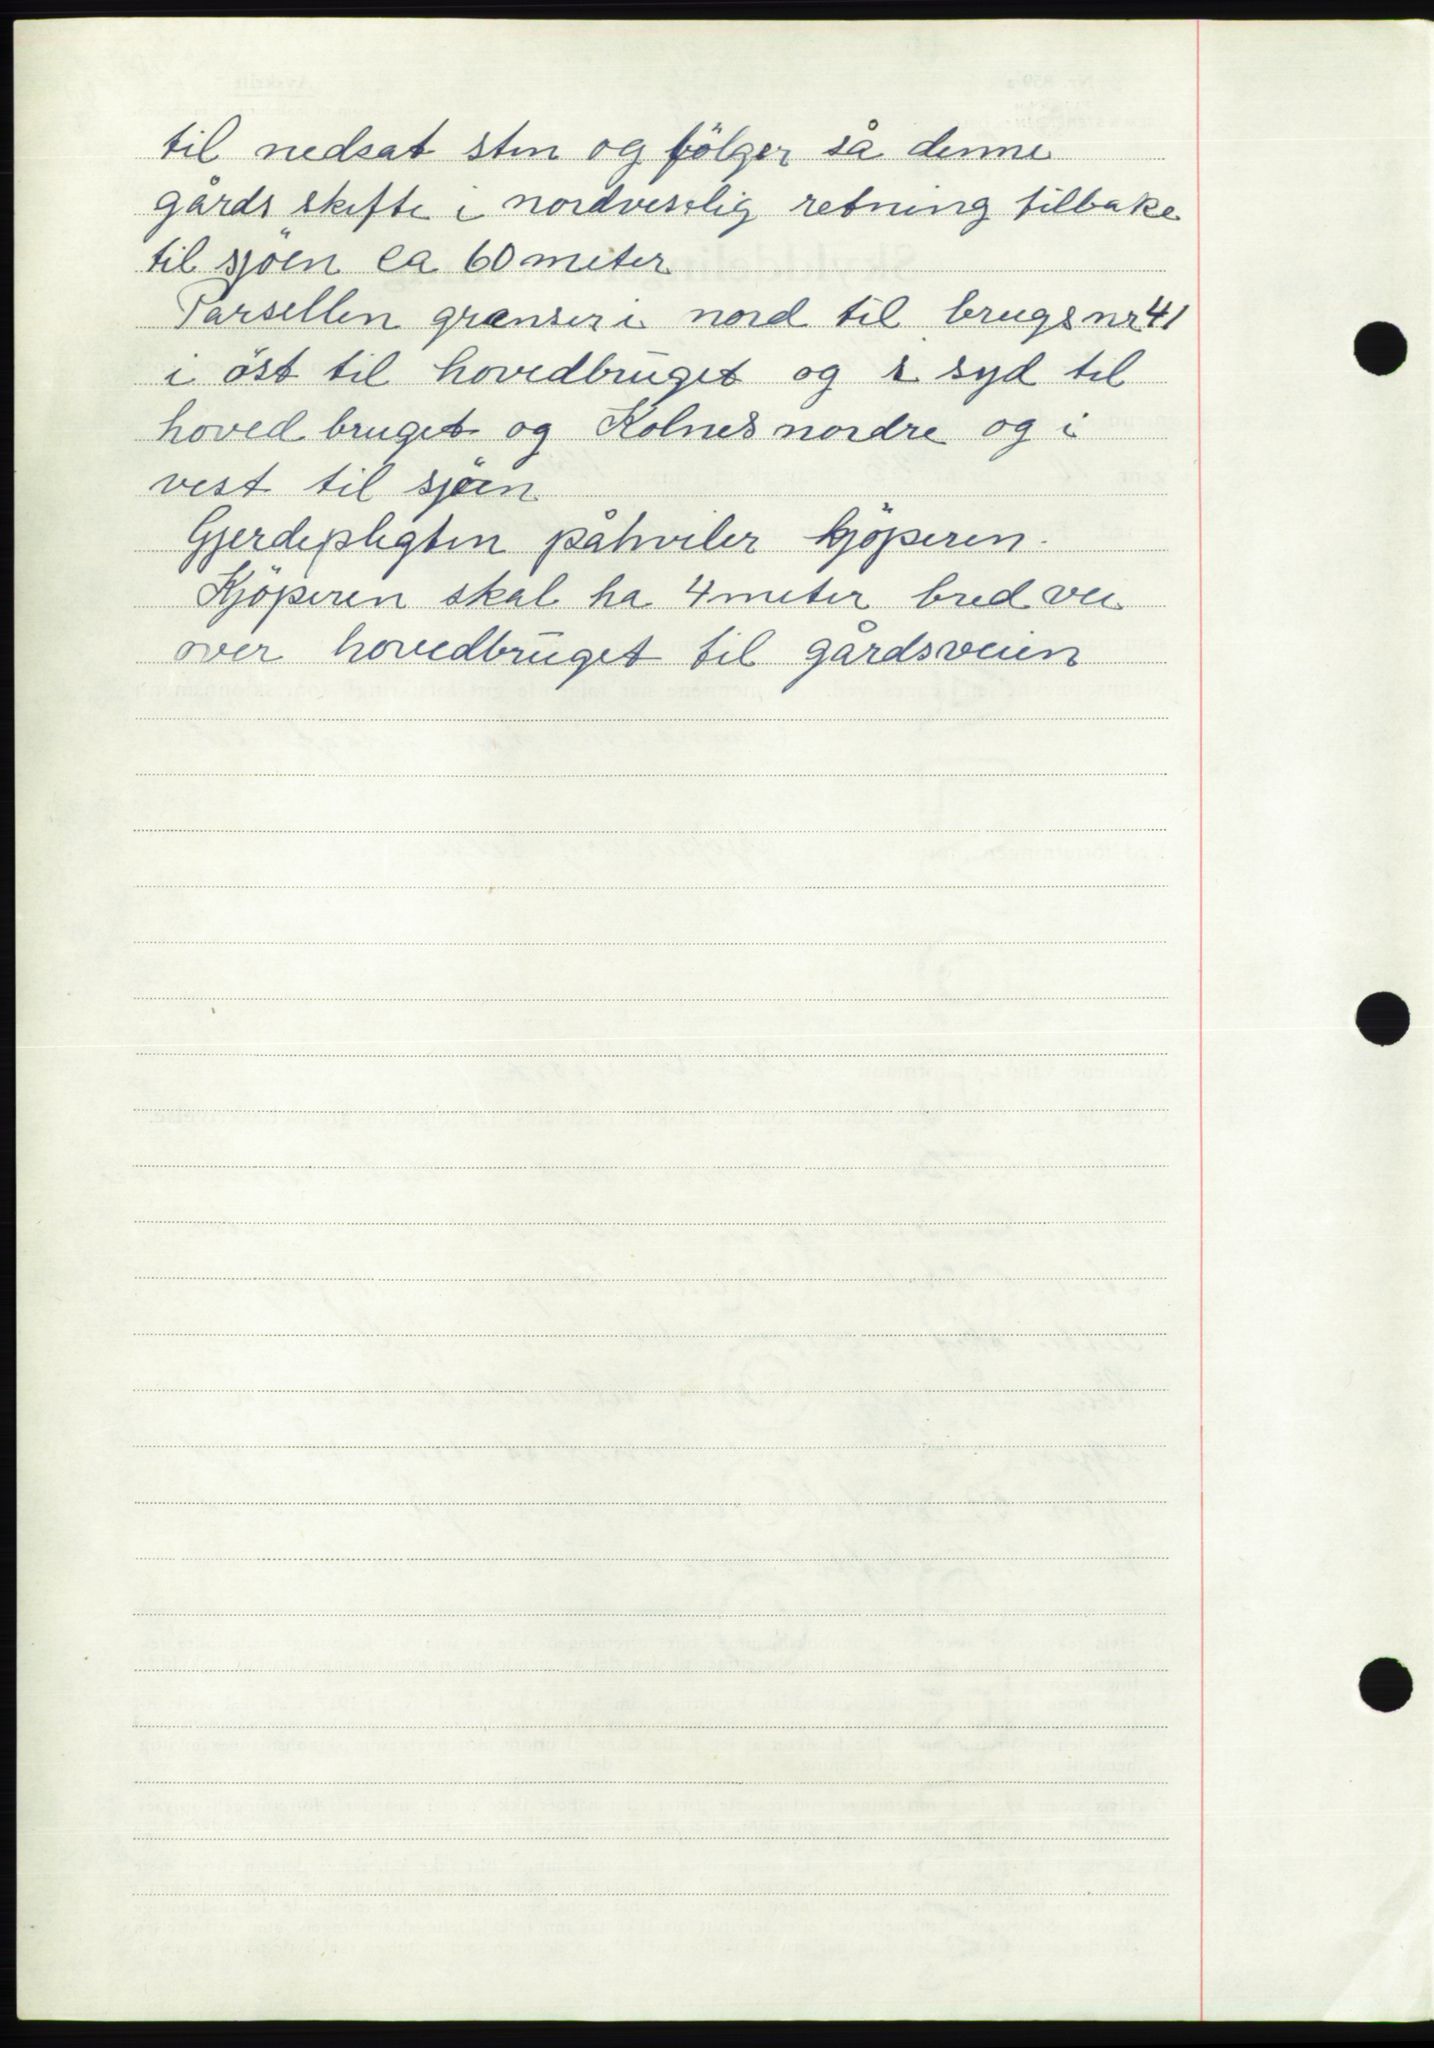 til nedsat sten og følger så denne
gårds skifte i nordvestlig retning tilbake
til sjöen ca 60 meter
Parsellen grænser i nord til brugs nr 41
i öst til hovedbruget og i syd til
hoved bruget og Kolnes nordre og i
vest til sjöen
Gjerdepligten påhviler kjöperen.
Kjöperen skal ha 4 meter bred vei
over hovedbruget til gårdsveien